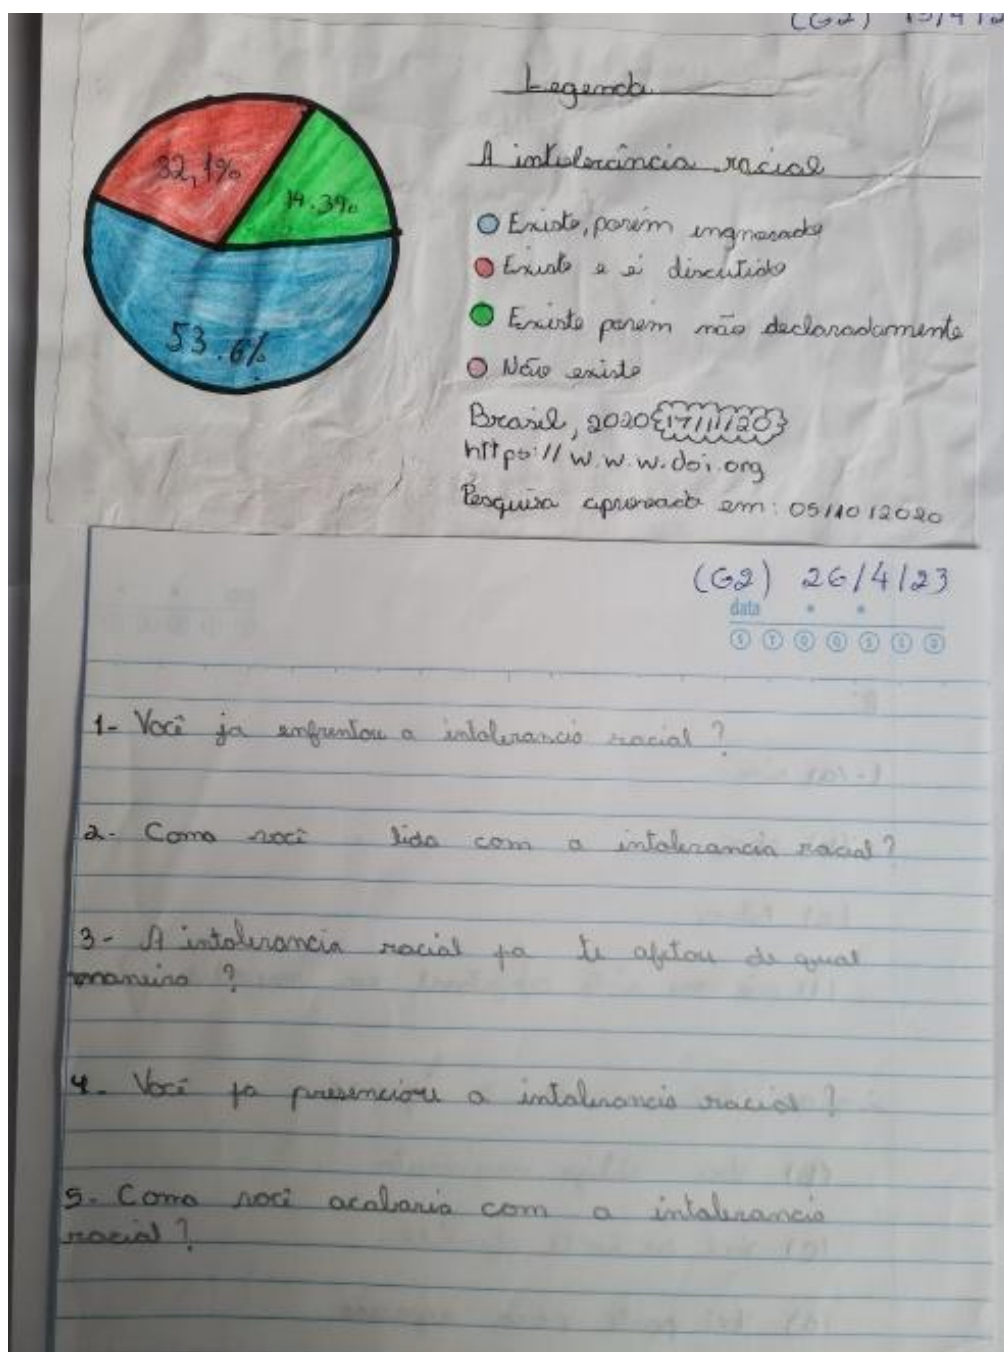 (G2)
Legenda
A intolerância racial
32,1%
14.3%
53.6%
Existe, porém ingnorado
Existe e é discutido
Existe porem não declaradamente
Não existe
Brasil, 2020 {17/11/20}
https://w.w.w.doi.org
Pesquisa aprovada em: 05/10/2020
(G2) 26/4/23
data
S T Q Q S S D
1- Você ja enfrentou a intolerancia racial?
2- Como você lida com a intolerancia racial?
3- A intolerancia racial ja te afetou de qual
maneira ?
4- Você ja presenciou a intolerancia racial ?
5- Como você acabaria com a intolerancia
racial ?